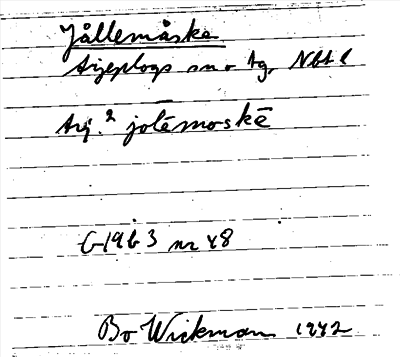 Jållemåske
Arjeplogs sn o tg, Nbt l
Arj.² jolēmoskē
G 1963 nr 48
Bo Wickman 1942